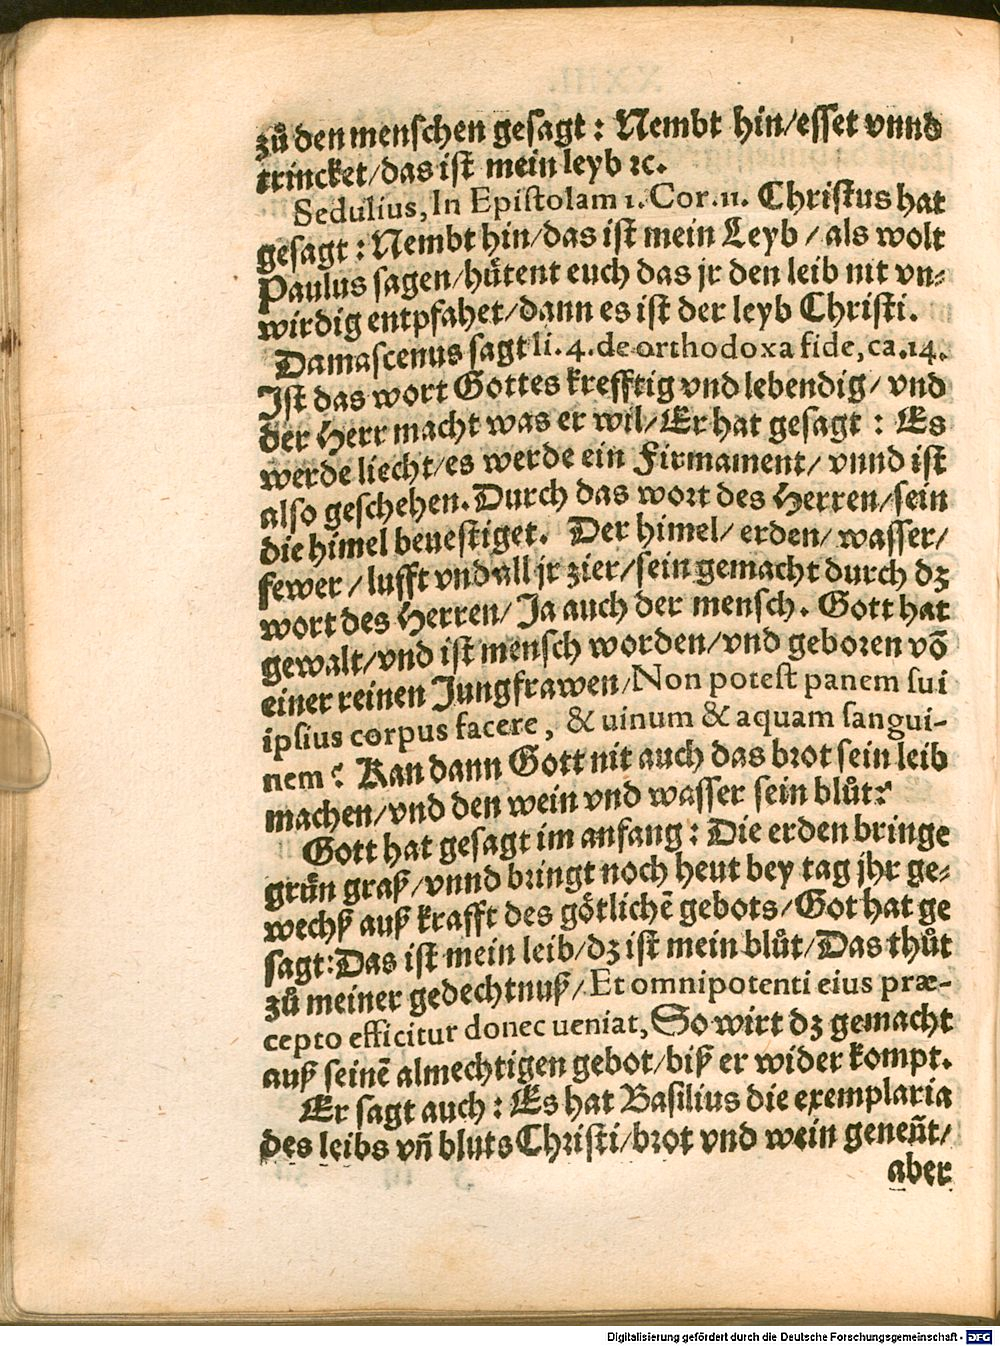 zů den menschen gesagt : Nembt hin/esset vnnd
trincket/das ist mein leyb ꝛc.
Sedulius, In Epistolam 1. Cor. 11. Christus hat
gesagt : Nembt hin/das ist mein Leyb / als wolt
Paulus sagen/hütent euch das jr den leib nit vn⸗
wirdig entpfahet/dann es ist der leyb Christi.
Damascenus sagt li. 4. de orthodoxa fide, ca. 14.
Ist das wort Gottes krefftig vnd lebendig/ vnd
der Herr macht was er wil/ Er hat gesagt : Es
werde liecht/es werde ein Firmament/ vnnd ist
also geschehen. Durch das wort des Herren/sein
die himel beuestiget. Der himel/ erden/ wasser/
fewer / lufft vnd all jr zier/sein gemacht durch dz
wort des Herren/ Ja auch der mensch. Gott hat
gewalt/vnd ist mensch worden/vnd geboren võ
einer reinen Jungfrawen/Non potest panem sui
ipsius corpus facere, & uinum & aquam sangui-
nem? Kan dann Gott nit auch das brot sein leib
machen/vnd den wein vnd wasser sein blůt?
Gott hat gesagt im anfang : Die erden bringe
grün graß/vnnd bringt noch heut bey tag jhr ge⸗
wechß auß krafft des götlichẽ gebots/Got hat ge
sagt: Das ist mein leib/dz ist mein blůt/Das thůt
zů meiner gedechtnuß/Et omnipotenti eius præ-
cepto efficitur donec ueniat, So wirt dz gemacht
auß seinẽ almechtigen gebot/biß er wider kompt.
Er sagt auch : Es hat Basilius die exemplaria
des leibs vñ bluts Christi/brot vnd wein geneñt/
aber
Digitalisierung gefördert durch die Deutsche Forschungsgemeinschaft - DFG